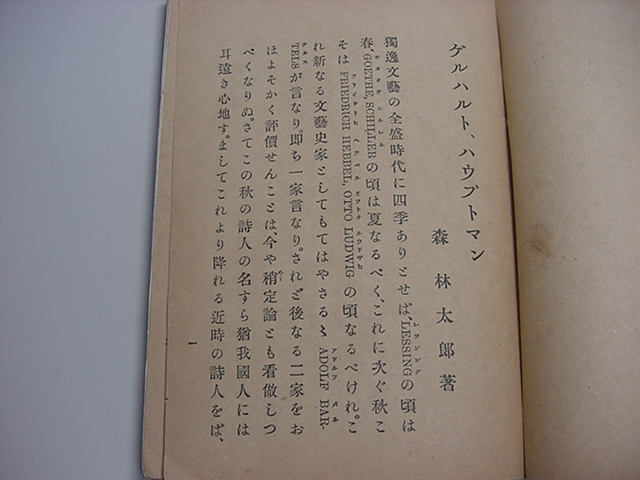 ゲルハルト、ハウプトマン
森林太郎著
獨逸文藝の全盛時代に四季ありとせば、LESSINGの頃は
春、GOETHE, SCHILLERの頃は夏なるべく、これに次ぐ秋こ
そは FRIEDRICH HEBBEL, OTTO LUDWIG の頃なるべけれ。こ
れ新なる文藝史家としてもてはやさるゝ ADOLF BAR-
TELSが言なり。即ち一家言なり。されど後なる二家をお
ほよそかく評價せんことは、今や稍定論とも看做しつ
べくなりぬ。さてこの秋の詩人の名すら猶我國人には
耳遠き心地す。ましてこれより降れる近時の詩人をば、
一